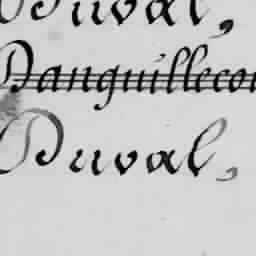 Duval,
Danguillecou
Duval,